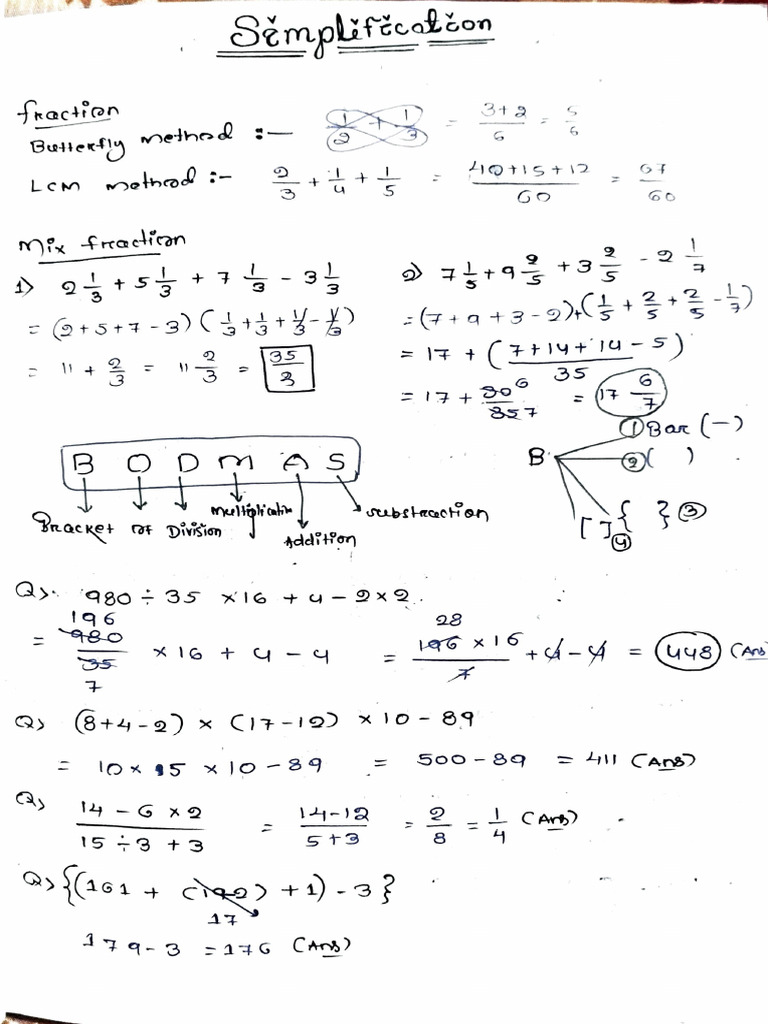 Simplification
fraction
Butterfly method :— 1/2 + 1/3 = 3+2/6 = 5/6
LCM method :- 2/3 + 1/4 + 1/5 = 40+15+12/60 = 67/60
Mix fraction
1) 2 1/3 + 5 1/3 + 7 1/3 - 3 1/3
= (2+5+7-3) (1/3+1/3+1/3-1/3)
= 11 + 2/3 = 11 2/3 = 35/3
2) 7 1/5 + 9 2/5 + 3 2/5 - 2 1/7
= (7+9+3-2)+(1/5+2/5+2/5-1/7)
= 17 + (7+14+14-5/35)
= 17 + 30 6/35 7 = 17 6/7
B O D M A S
Bracket of Division Multiplication Addition substraction
B
① Bar (—)
② ( )
{ } ③
[ ] ④
Q>. 980 ÷ 35 × 16 + 4 - 2 × 2
= 196 980/35 7 × 16 + 4 - 4 = 28 196 × 16/7 + 4 - 4 = 448 (Ans)
Q> (8+4-2) × (17-12) × 10 - 89
= 10 × 5 × 10 - 89 = 500 - 89 = 411 (Ans)
Q> 14 - 6 × 2/15 ÷ 3 + 3 = 14-12/5+3 = 2/8 = 1/4 (Ans)
Q> {(161 + ( ) + 1) - 3}
17
179 - 3 = 176 (Ans)